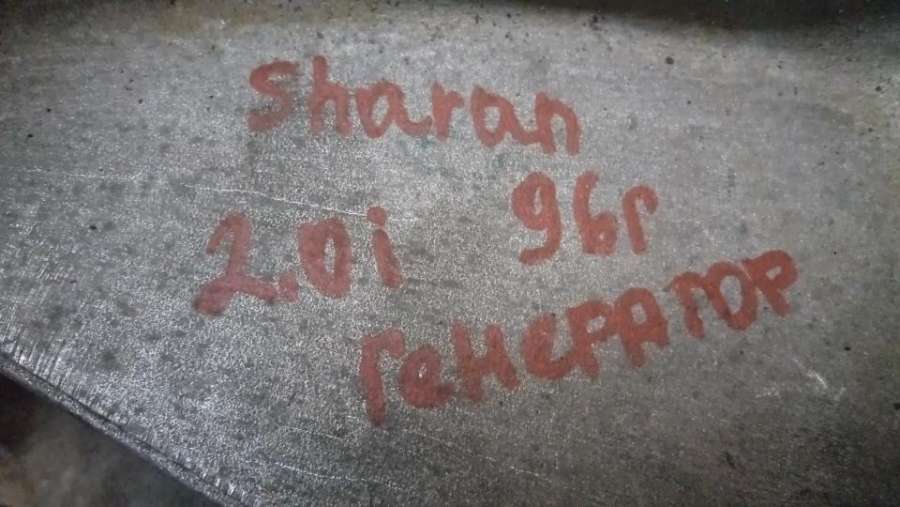 Sharan
2.0i 96г
Генератор